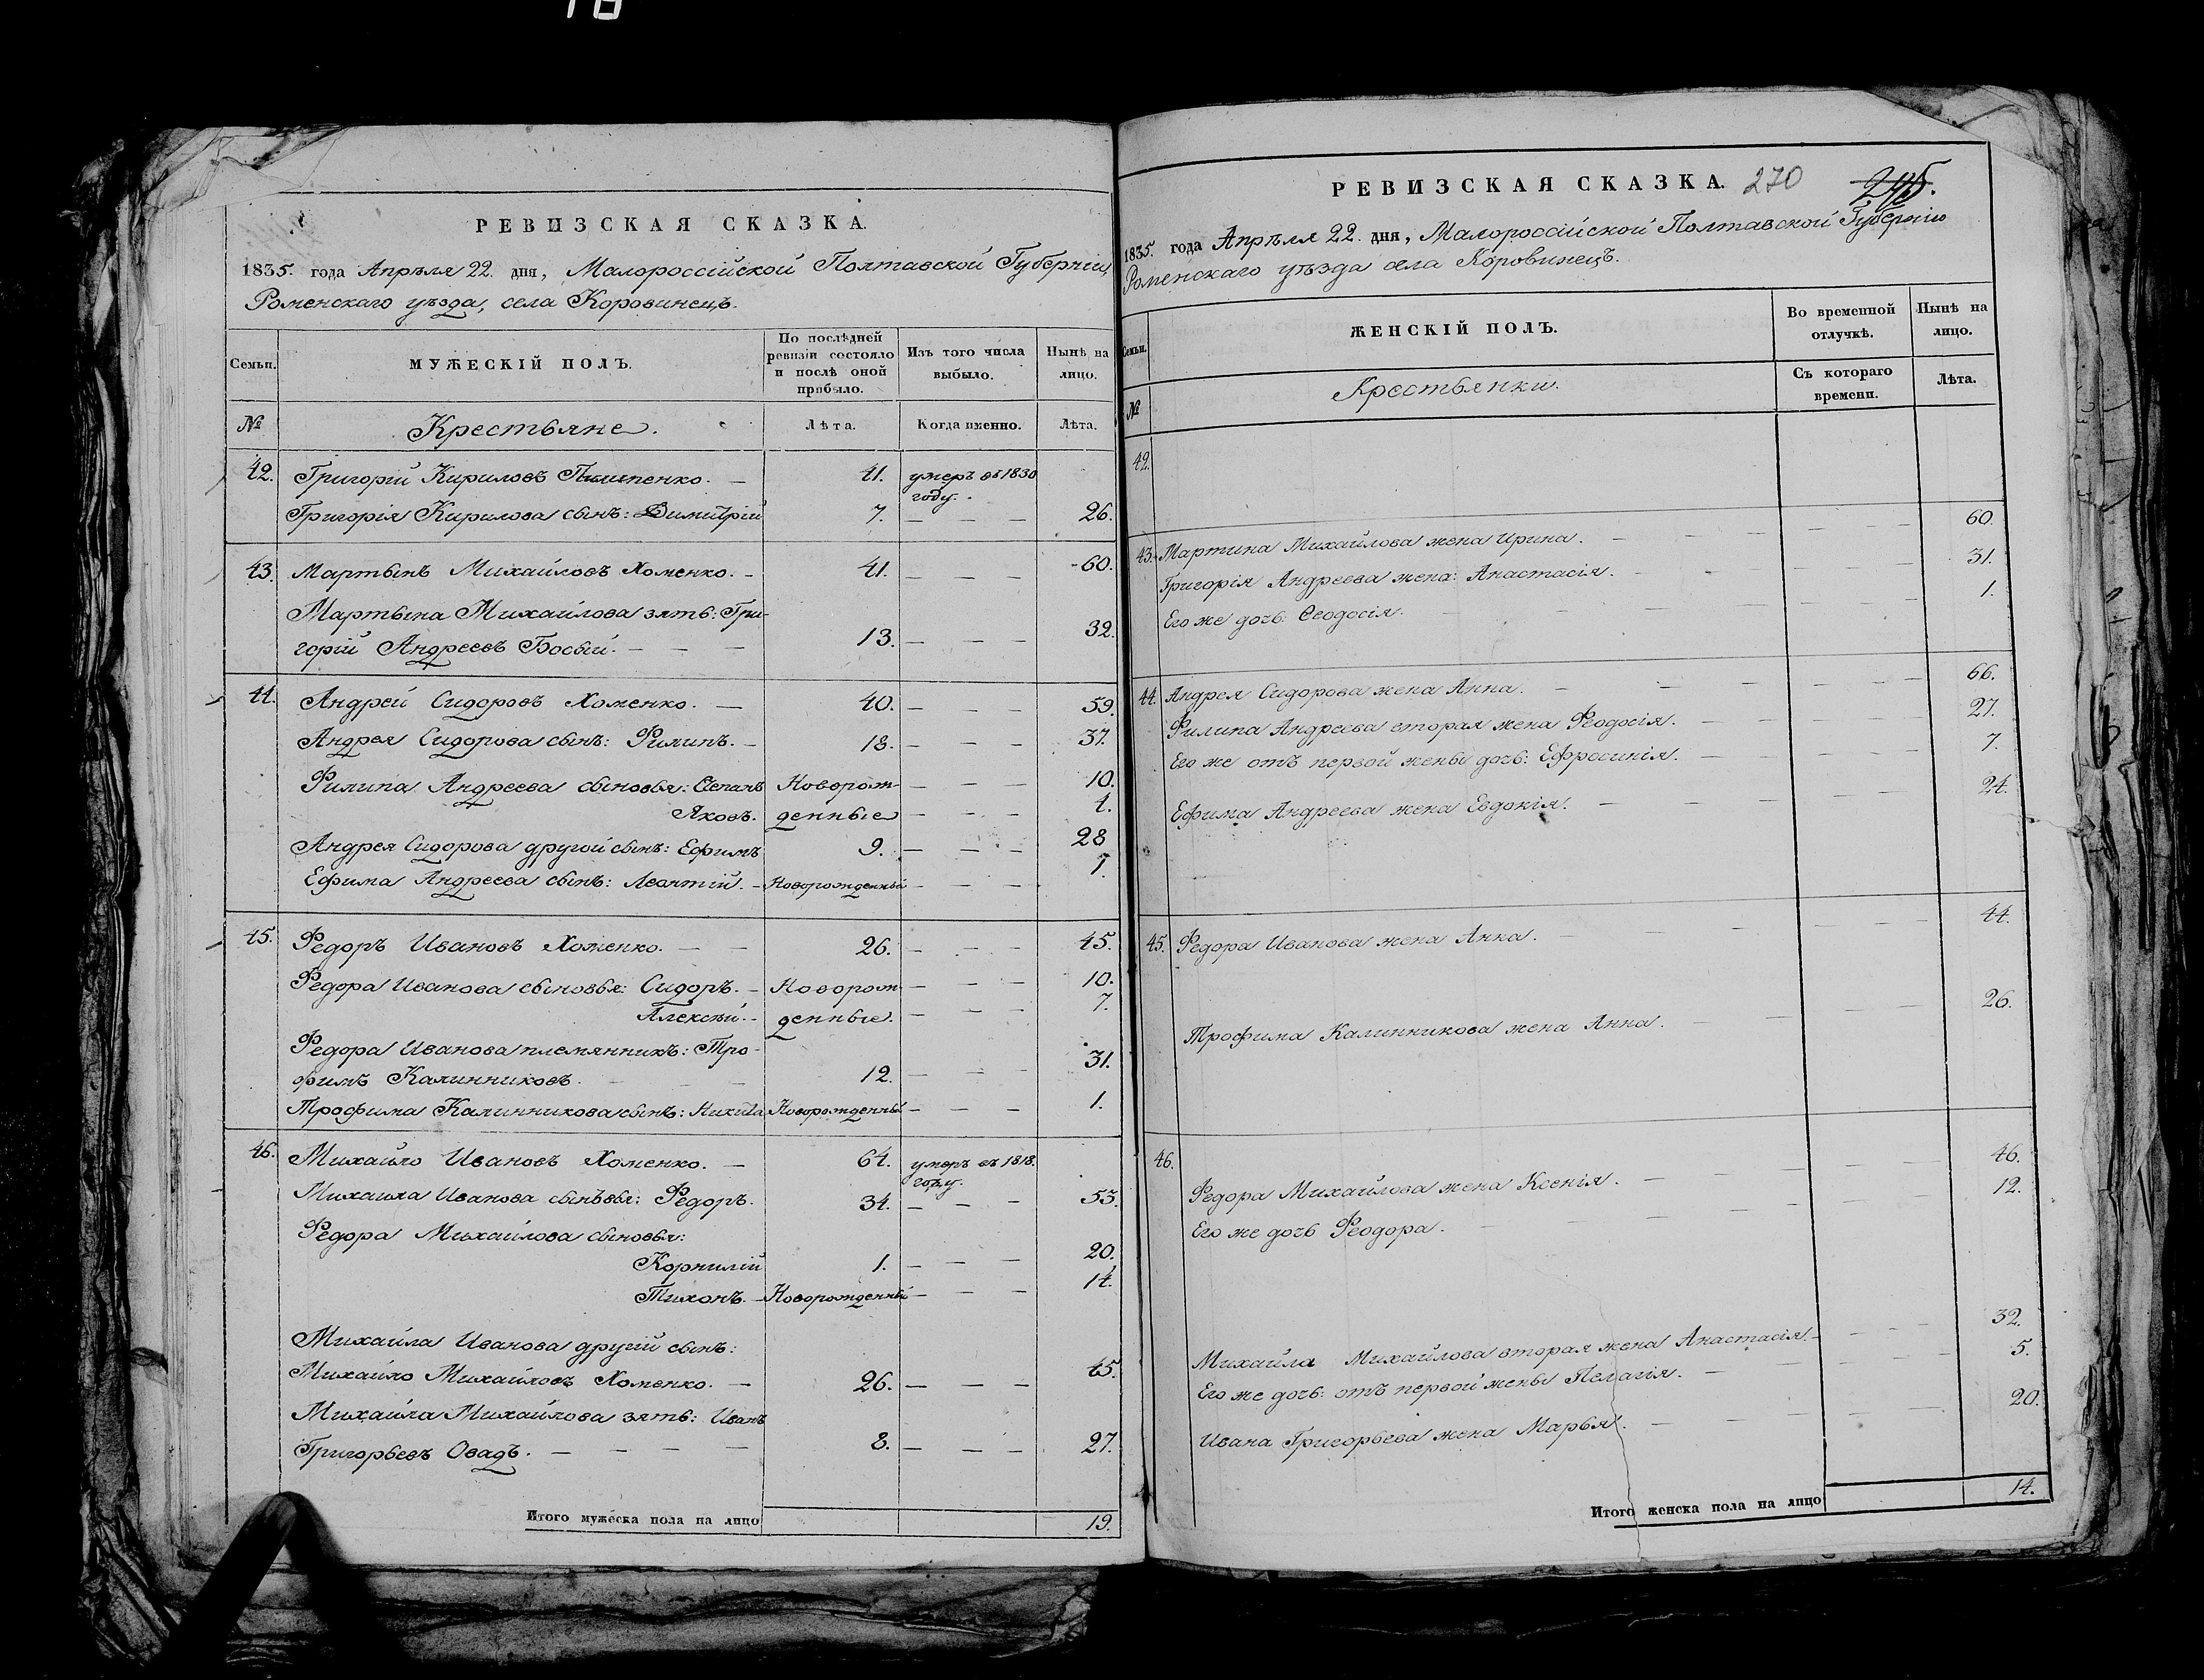 18
РЕВИЗСКАЯ СКАЗКА.
1835. года Апрѣля 22. дня, Малороссійской Полтавской Губерніи,
Роменскаго уѣзда, села Коровинецъ.
Семьи.
МУЖЕСКІЙ ПОЛЪ.
По послѣдней ревизіи состояло и послѣ оной прибыло.
Изъ того числа выбыло.
Нынѣ на лицо.
№
Крестьяне.
Лѣта.
Когда именно.
Лѣта.
42. Григорій Кириловъ Пилипенко. — 41. умеръ въ 1830 году.
Григорія Кирилова сынъ: Димитрій 7. — — — 26.
43. Мартынъ Михайловъ Хоменко. — 41. — — — 60.
Мартына Михайлова зять: Гри-
горій Андреевъ Босый. — — — 13. — — — 32.
44. Андрей Сидоровъ Хоменко. — 40. — — — 59.
Андрея Сидорова сынъ: Филипъ. — 18. — — — 37.
Филипа Андреева сыновья: Степанъ Новорож- — — — 10.
Яковъ. денные — — — 4.
Андрея Сидорова другой сынъ: Ефимъ 9. — — — 28
Ефима Андреева сынъ: Леонтій. — Новорожденный — — — 1.
45. Федоръ Ивановъ Хоменко. — — 26. — — — 45.
Федора Иванова сыновья: Сидоръ. — Новорож- — — — 10.
Алексѣй. — денные. — — — 7.
Федора Иванова племянникъ: Тро-
фимъ Калинниковъ. — — 12. — — — 31.
Трофима Калинникова сынъ: Никита Новорожденный — — — 1.
46. Михайло Ивановъ Хоменко. — 64. умеръ въ 1818. году.
Михаила Иванова сыновья: Федоръ. 34. — — — 53.
Федора Михайлова сыновья:
Корнилій 1. — — — 20.
Тихонъ. — Новорожденный — — — 14.
Михайла Иванова другій сынъ:
Михайло Михайловъ Хоменко. — 26. — — — 45.
Михайла Михайлова зять: Иванъ
Григорьевъ Овадъ. — — — — 8. — — — 27.
Итого мужеска пола на лицо 19.
РЕВИЗСКАЯ СКАЗКА. 270
1835. года Апрѣля 22. дня, Малороссійской Полтавской Губерніи
Роменскаго уѣзда села Коровинецъ.
Семьи.
ЖЕНСКІЙ ПОЛЪ.
Во временной отлучкѣ.
Нынѣ на лицо.
№
Крестьянки.
Съ котораго времени.
Лѣта.
42.
43. Мартина Михайлова жена Ирина. — — — 60.
Григорія Андреева жена: Анастасія. — — — 31.
Его же дочь: Феодосія. — — — 1.
44. Андрея Сидорова жена Анна. — — — 66.
Филипа Андреева вторая жена Феодосія. — — — 27.
Его же отъ первой жены дочь: Ефросинія. — — — 7.
Ефима Андреева жена Евдокія. — — — 24.
45. Федора Иванова жена Анна. — — — 44.
Трофима Калинникова жена Анна. — — — 26.
46. Федора Михайлова жена Ксенія. — — — 46.
Его же дочь Феодора. — — — 12.
Михайла Михайлова вторая жена Анастасія. — — — 32.
Его же дочь: отъ первой жены Пелагія. — — — 5.
Ивана Григорьева жена Марья. — — — 20.
Итого женска пола на лицо 14.